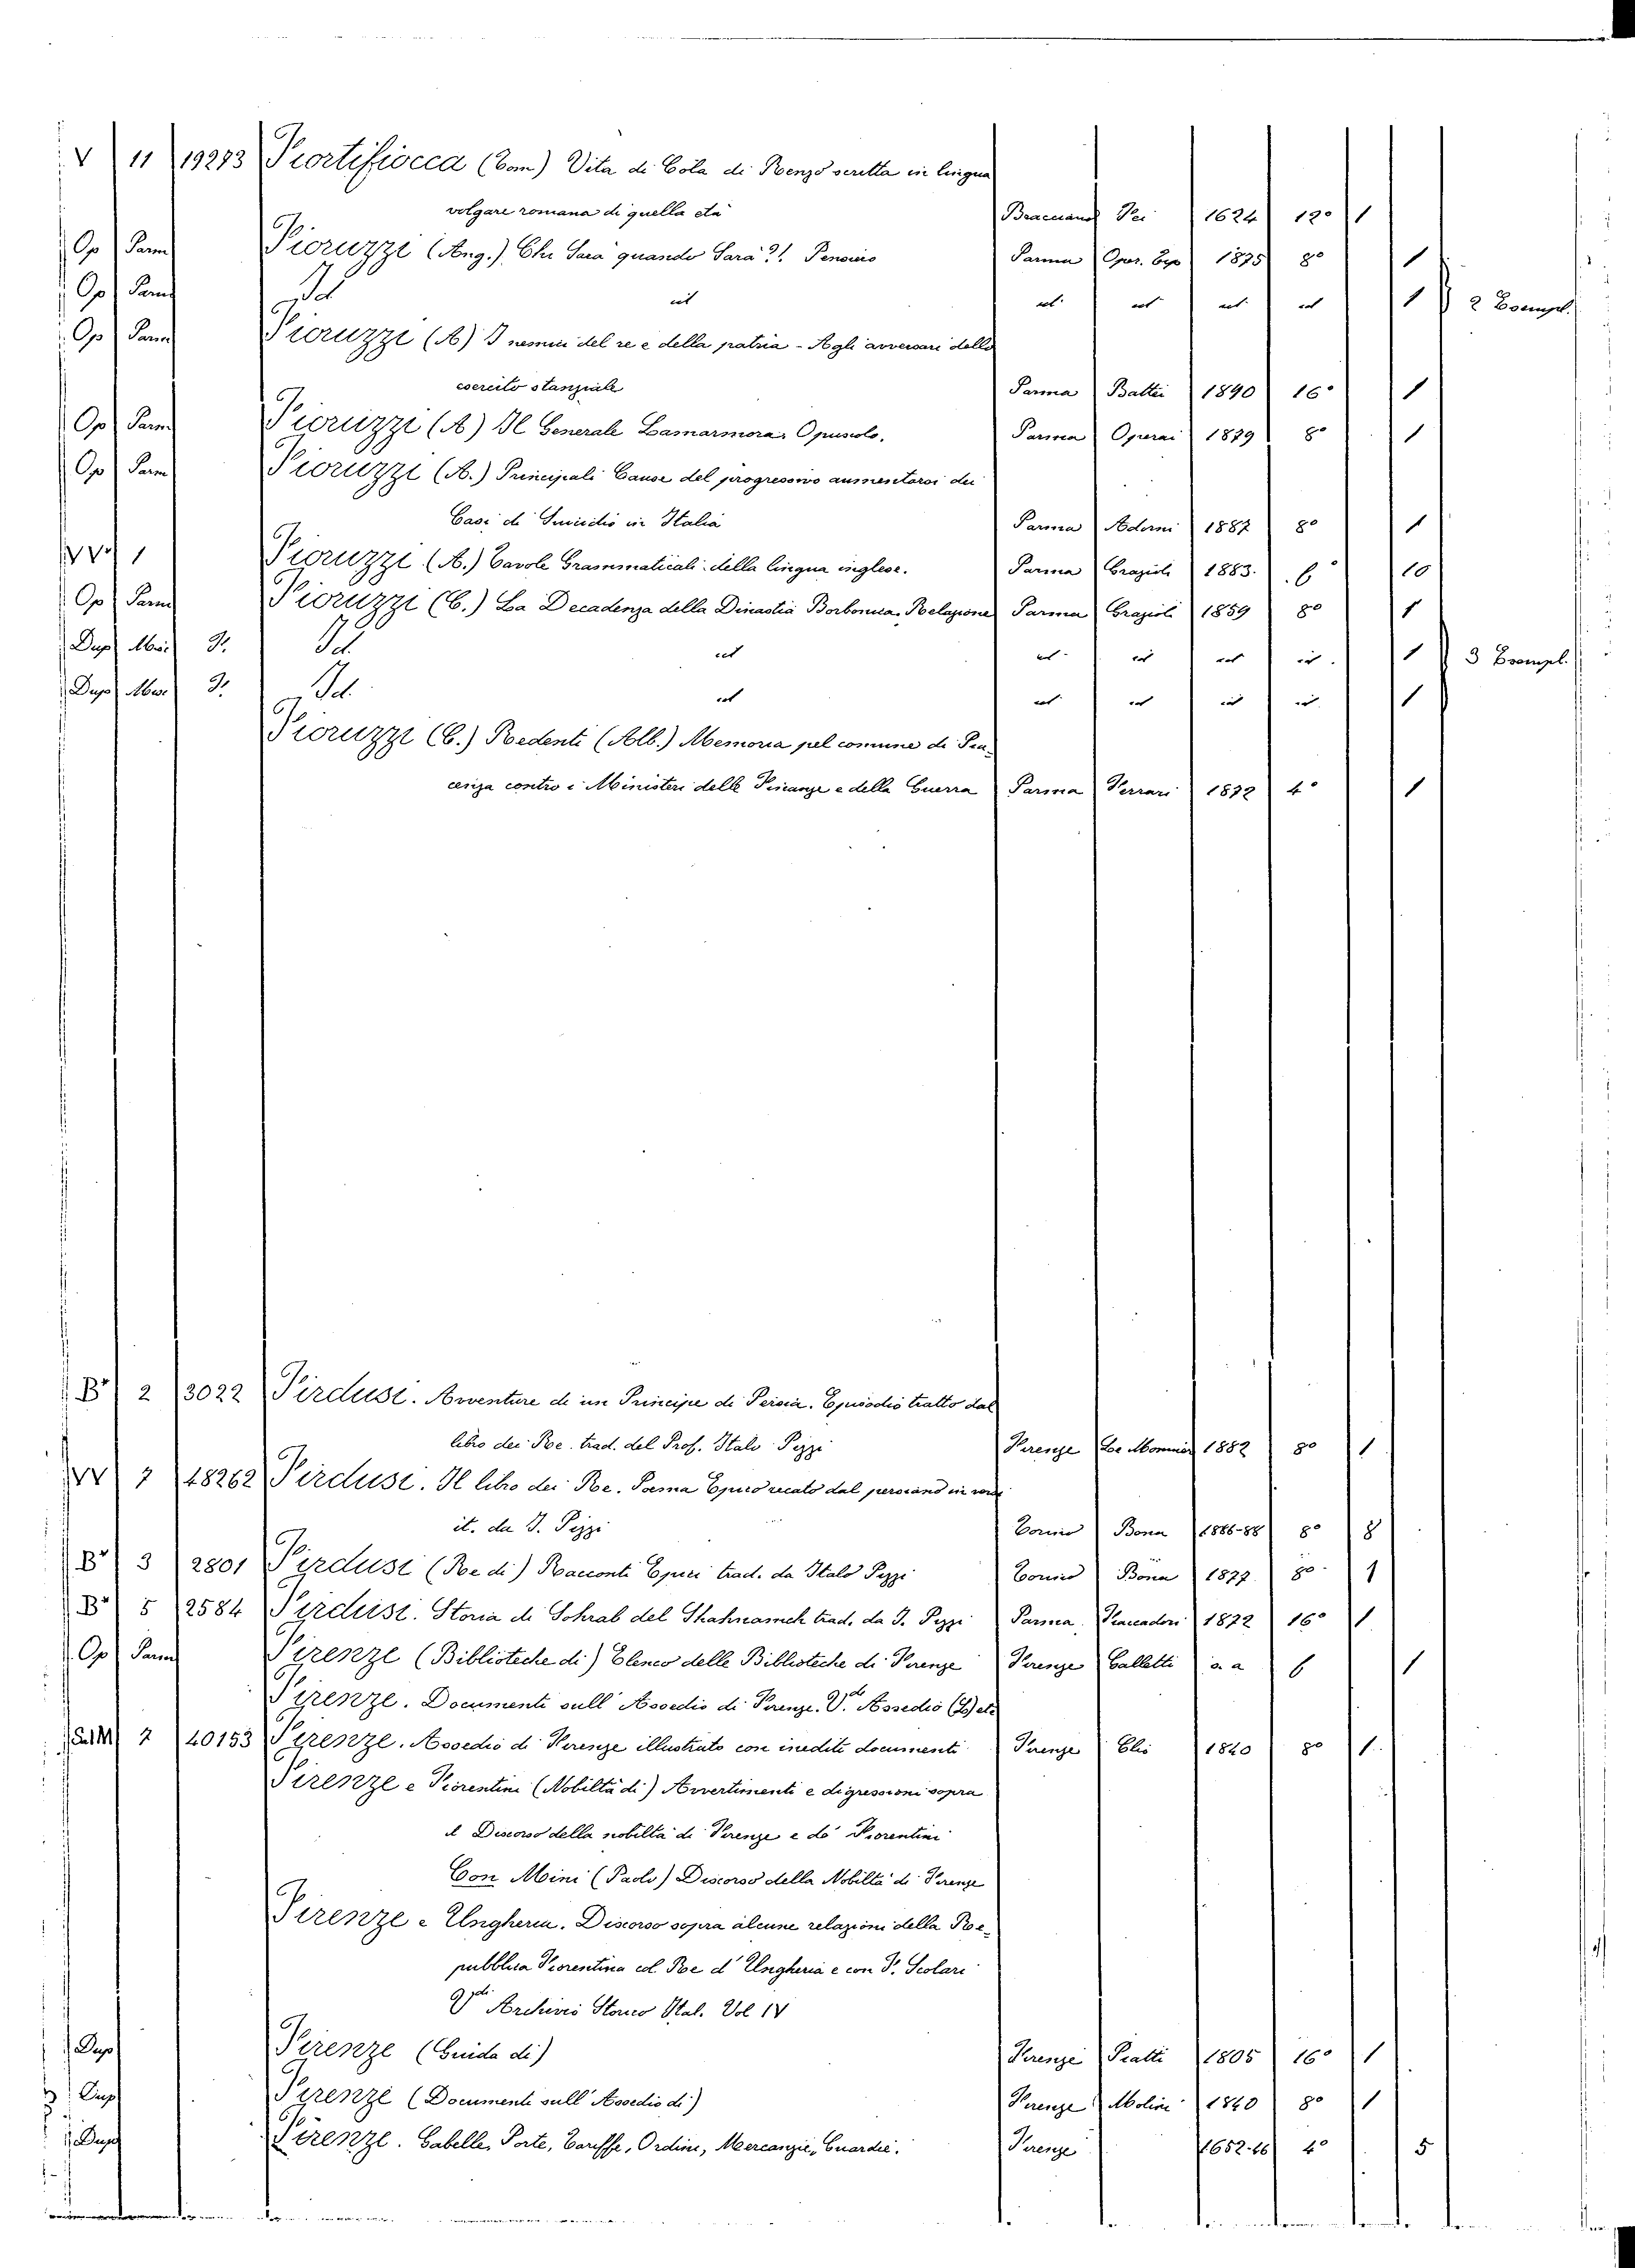 V 11 19273 Fiortifiocca (Tom) Vita di Cola di Renzo scritta in lingua
volgare romana di quella età Bracciano Fei 1624 12° 1
Op Parm Fioruzzi (Ang.) Chi Sarà quando Sarà?!. Pensiero Parma Oper. Tip 1875 8° 1
Op Parm Id ut ut ut ut ut 1 2 Esempl.
Op Parm Fioruzzi (A) I nemici del re e della patria - Agli avversari dello
esercito stanziale Parma Battei 1890 16° 1
Op Parm Fioruzzi (A) Il Generale Lamarmora. Opuscolo. Parma Operai 1879 8° 1
Op Parm Fioruzzi (A.) Principali Cause del progressivo aumentarsi dei
Casi di Suicidio in Italia Parma Adorni 1887 8° 1
VV 1 Fioruzzi (A.) Tavole Grammaticali della lingua inglese. Parma Grazioli 1883. 6 10
Op Parm Fioruzzi (C.) La Decadenza della Dinastia Borbonica. Relazione Parma Grazioli 1859 8° 1
Dup Id. ut ut ut ut ut. 1 3 Esempl.
Dup Id. ut ut ut ut ut 1
Fioruzzi (C.) Redenti (Alb.) Memoria pel comune di Pia-
cenza contro i Ministeri delle Finanze e della Guerra Parma Ferrari 1872 4° 1
B° 2 3022 Firdusi. Avventure di un Principe di Persia. Episodio tratto dal
libro dei Re. trad. del Prof. Italo Pizzi Firenze Le Monnier 1882 8° 1
VV 7 48262 Firdusi. Il libro dei Re. Poema Epico recato dal persiano in versi
it. da I. Pizzi Torino Bona 1886-88 8° 8
B° 3 2801 Firdusi (Re di) Racconti Epici trad. da Italo Pizzi Torino Bona 1877. 8° 1
B° 5 2584 Firdusi. Storia di Sohrab del Shahnameh trad. da I. Pizzi Parma. Fiaccadori 1872 16° 1
Op Parm Firenze (Biblioteche di) Elenco delle Biblioteche di Firenze Firenze Galletti s. a 6 1
Firenze. Documenti sull'Assedio di Firenze. Vdi Assedio (L) etc
7 40153 Firenze. Assedio di Firenze illustrato con inediti documenti Firenze Elio 1840 8° 1.
Firenze e Fiorentini (Nobiltà di) Avvertimenti e digressioni sopra
il Discorso della nobiltà di Firenze e de' Fiorentini
Con Mini (Paolo) Discorso della Nobiltà di Firenze
Firenze e Ungheria. Discorso sopra alcune relazioni della Re-
pubblica Fiorentina col Re d'Ungheria e con F. Scolari
Vdi Archivio Storico Ital. Vol IV
Dup Firenze (Guida di) Firenze Piatti 1805 16° 1
Dup Firenze (Documenti sull'Assedio di) Firenze Molini 1840 8° 1
Dup Firenze. Gabelle, Porte, Tariffe, Ordini, Mercanzie, Guardie. Firenze 1652-66 4° 5